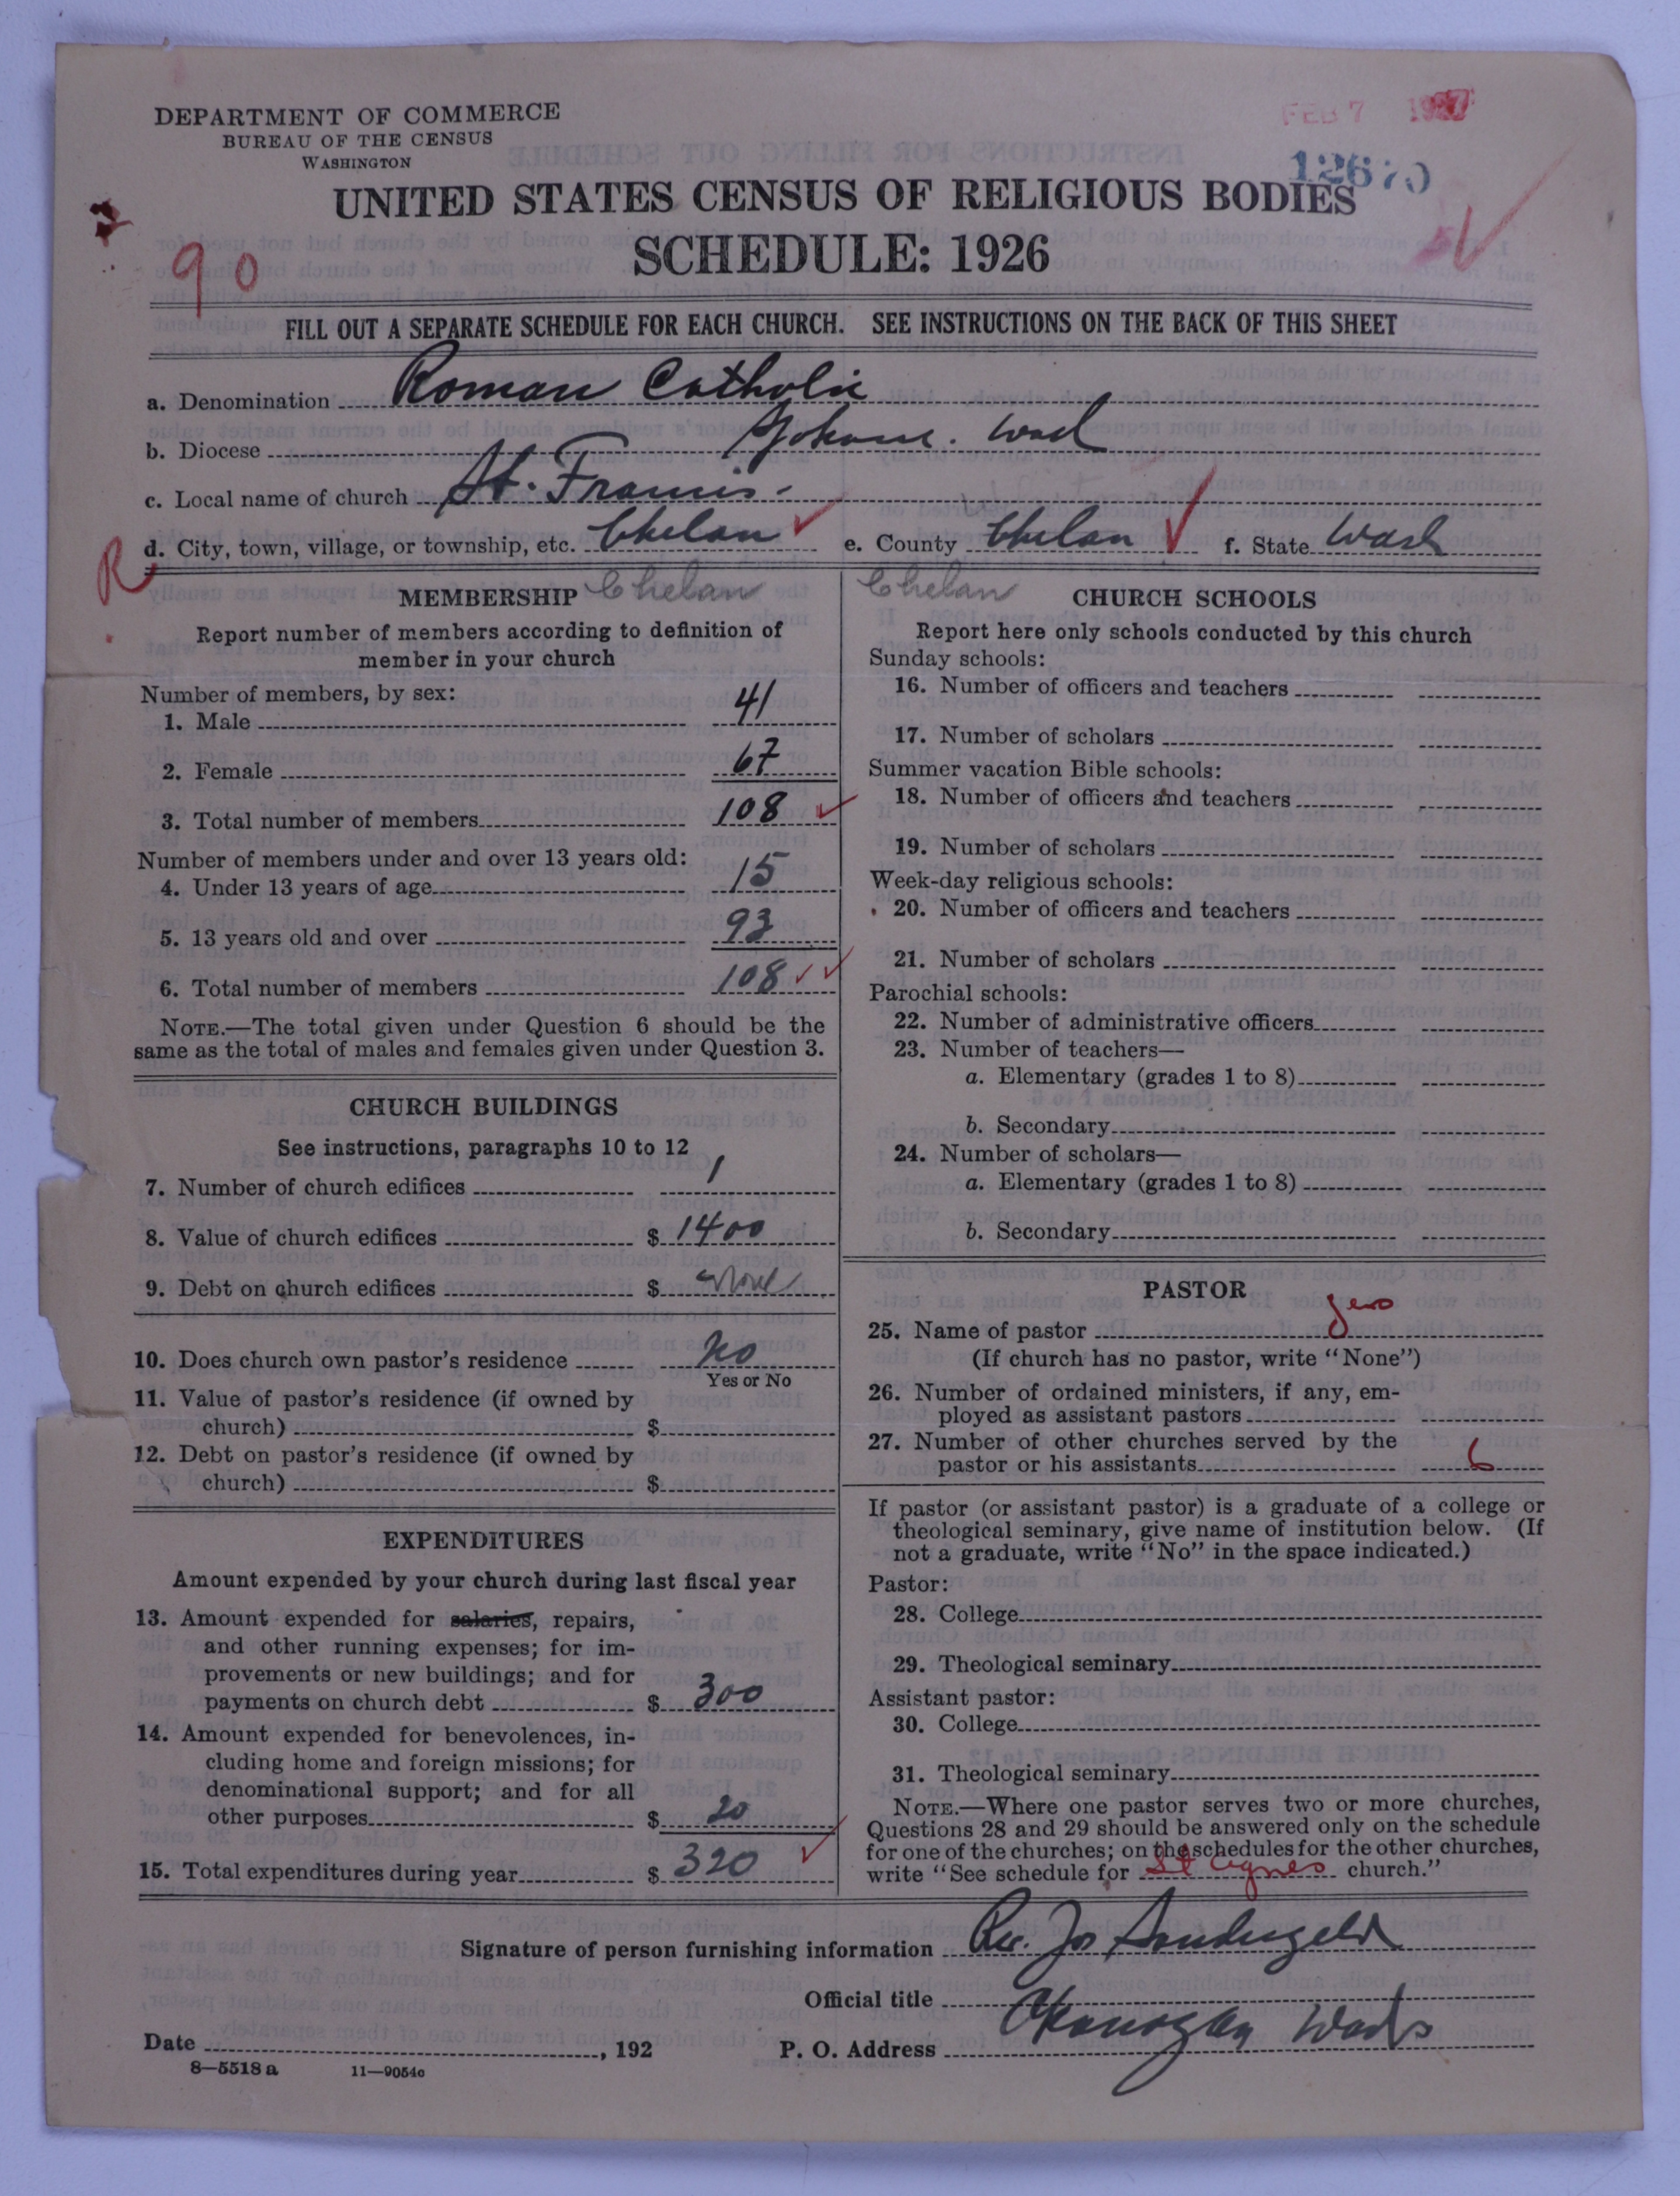 DEPARTMENT OF COMMERCE
BUREAU OF THE CENSUS
WASHINGTON
FEB 7 1927
12670
UNITED STATES CENSUS OF RELIGIOUS BODIES
SCHEDULE: 1926
90
FILL OUT A SEPARATE SCHEDULE FOR EACH CHURCH. SEE INSTRUCTIONS ON THE BACK OF THIS SHEET
a. Denomination Roman Catholic
b. Diocese Spokane. Wash
c. Local name of church St. Francis.
d. City, town, village, or township, etc. Chelan e. County Chelan f. State Wash
R
MEMBERSHIP Chelan
Report number of members according to definition of
member in your church
Number of members, by sex:
1. Male 41
2. Female 67
3. Total number of members 108
Number of members under and over 13 years old:
4. Under 13 years of age 15
5. 13 years old and over 93
6. Total number of members 108
NOTE.—The total given under Question 6 should be the
same as the total of males and females given under Question 3.
CHURCH BUILDINGS
See instructions, paragraphs 10 to 12
7. Number of church edifices 1
8. Value of church edifices $ 1400
9. Debt on church edifices $ None
10. Does church own pastor's residence No
Yes or No
11. Value of pastor's residence (if owned by
church) $
12. Debt on pastor's residence (if owned by
church) $
EXPENDITURES
Amount expended by your church during last fiscal year
13. Amount expended for salaries, repairs,
and other running expenses; for im-
provements or new buildings; and for
payments on church debt $ 300
14. Amount expended for benevolences, in-
cluding home and foreign missions; for
denominational support; and for all
other purposes $ 20
15. Total expenditures during year $ 320
Chelan CHURCH SCHOOLS
Report here only schools conducted by this church
Sunday schools:
16. Number of officers and teachers
17. Number of scholars
Summer vacation Bible schools:
18. Number of officers and teachers
19. Number of scholars
Week-day religious schools:
20. Number of officers and teachers
21. Number of scholars
Parochial schools:
22. Number of administrative officers
23. Number of teachers—
a. Elementary (grades 1 to 8)
b. Secondary
24. Number of scholars—
a. Elementary (grades 1 to 8)
b. Secondary
PASTOR
25. Name of pastor yes
(If church has no pastor, write "None")
26. Number of ordained ministers, if any, em-
ployed as assistant pastors
27. Number of other churches served by the
pastor or his assistants 6
If pastor (or assistant pastor) is a graduate of a college or
theological seminary, give name of institution below. (If
not a graduate, write "No" in the space indicated.)
Pastor:
28. College
29. Theological seminary
Assistant pastor:
30. College
31. Theological seminary
NOTE.—Where one pastor serves two or more churches,
Questions 28 and 29 should be answered only on the schedule
for one of the churches; on the schedules for the other churches,
write "See schedule for St Agnes church."
Signature of person furnishing information Rev. Jos
Official title
Date , 192 P. O. Address Okanogan Wash
8—5518 a 11—9054c